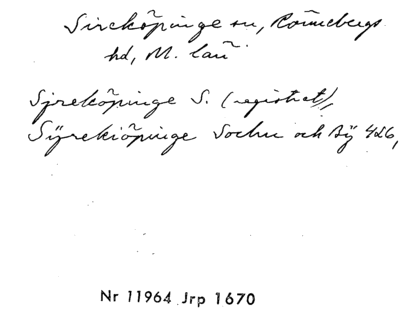 Sireköpinge sn, Rönnebergs
hd, M. län
Sjreköpinge S. (registret),
Sÿrekiöpinge Sochn och bÿ 426,
Nr 11964 Jrp 1670